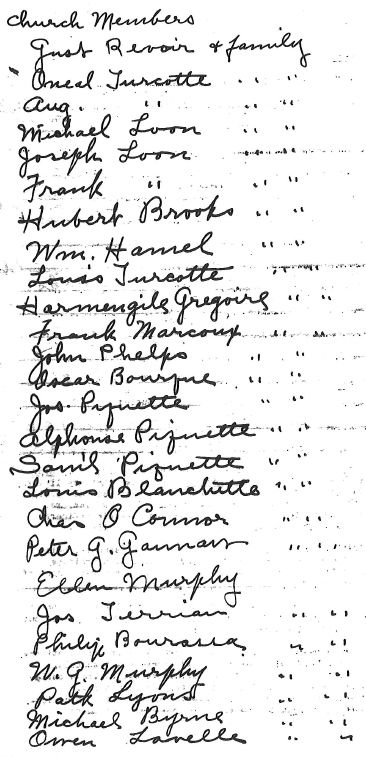 Church Members
Gust Revoir & family
Oneal Turcotte " "
Aug. " " "
Michael Loon " "
Joseph Loon " "
Frank " " "
Hubert Brooks " "
Wm. Hamel " "
Louis Turcotte " "
Harmengile Gregoire " "
Frank Marcoux " "
John Phelps " "
Oscar Bourque " "
Jos. Piquette " "
Alphonse Piquette " "
Saml Piquette " "
Louis Blanchette " "
Chas O Connor " "
Peter G. Gannaw " "
Ellen Murphy
Jos Terrian " "
Philip Bourassa " "
W. G. Murphy " "
Patk Lyons " "
Michael Byrne " "
Owen Lavelle " "